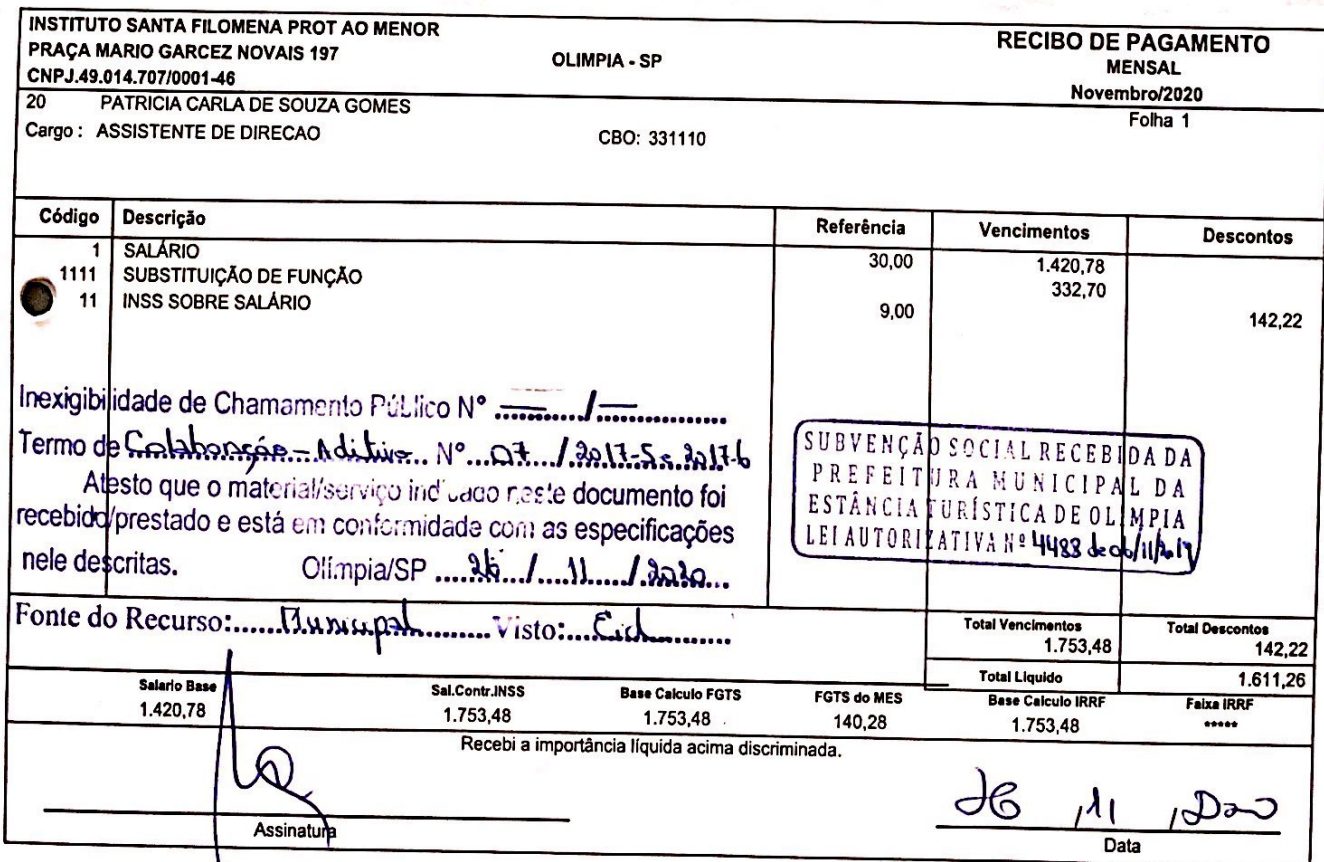 INSTITUTO SANTA FILOMENA PROT AO MENOR
PRAÇA MARIO GARCEZ NOVAIS 197
CNPJ.49.014.707/0001-46
OLIMPIA - SP
RECIBO DE PAGAMENTO
MENSAL
Novembro/2020
20 PATRICIA CARLA DE SOUZA GOMES
Folha 1
Cargo : ASSISTENTE DE DIRECAO CBO: 331110
Código Descrição Referência Vencimentos Descontos
1 SALÁRIO 30,00 1.420,78
1111 SUBSTITUIÇÃO DE FUNÇÃO 332,70
11 INSS SOBRE SALÁRIO 9,00 142,22
Inexigibilidade de Chamamento Público Nº — / —
Termo de Colaboração - Aditivo Nº 07 / 2017-5 e 2017-6
Atesto que o material/serviço indicado neste documento foi
recebido/prestado e está em conformidade com as especificações
nele descritas. Olímpia/SP 26 / 11 / 2020
SUBVENÇÃO SOCIAL RECEBIDA DA
PREFEITURA MUNICIPAL DA
ESTÂNCIA TURÍSTICA DE OLIMPIA
LEI AUTORIZATIVA Nº 4488 de 06/11/2019
Fonte do Recurso: Municipal Visto:
Total Vencimentos Total Descontos
1.753,48 142,22
Total Liquido 1.611,26
Salario Base Sal.Contr.INSS Base Calculo FGTS FGTS do MES Base Calculo IRRF Faixa IRRF
1.420,78 1.753,48 1.753,48 140,28 1.753,48 *****
Recebi a importância líquida acima discriminada.
26 , 11 ,
Assinatura Data